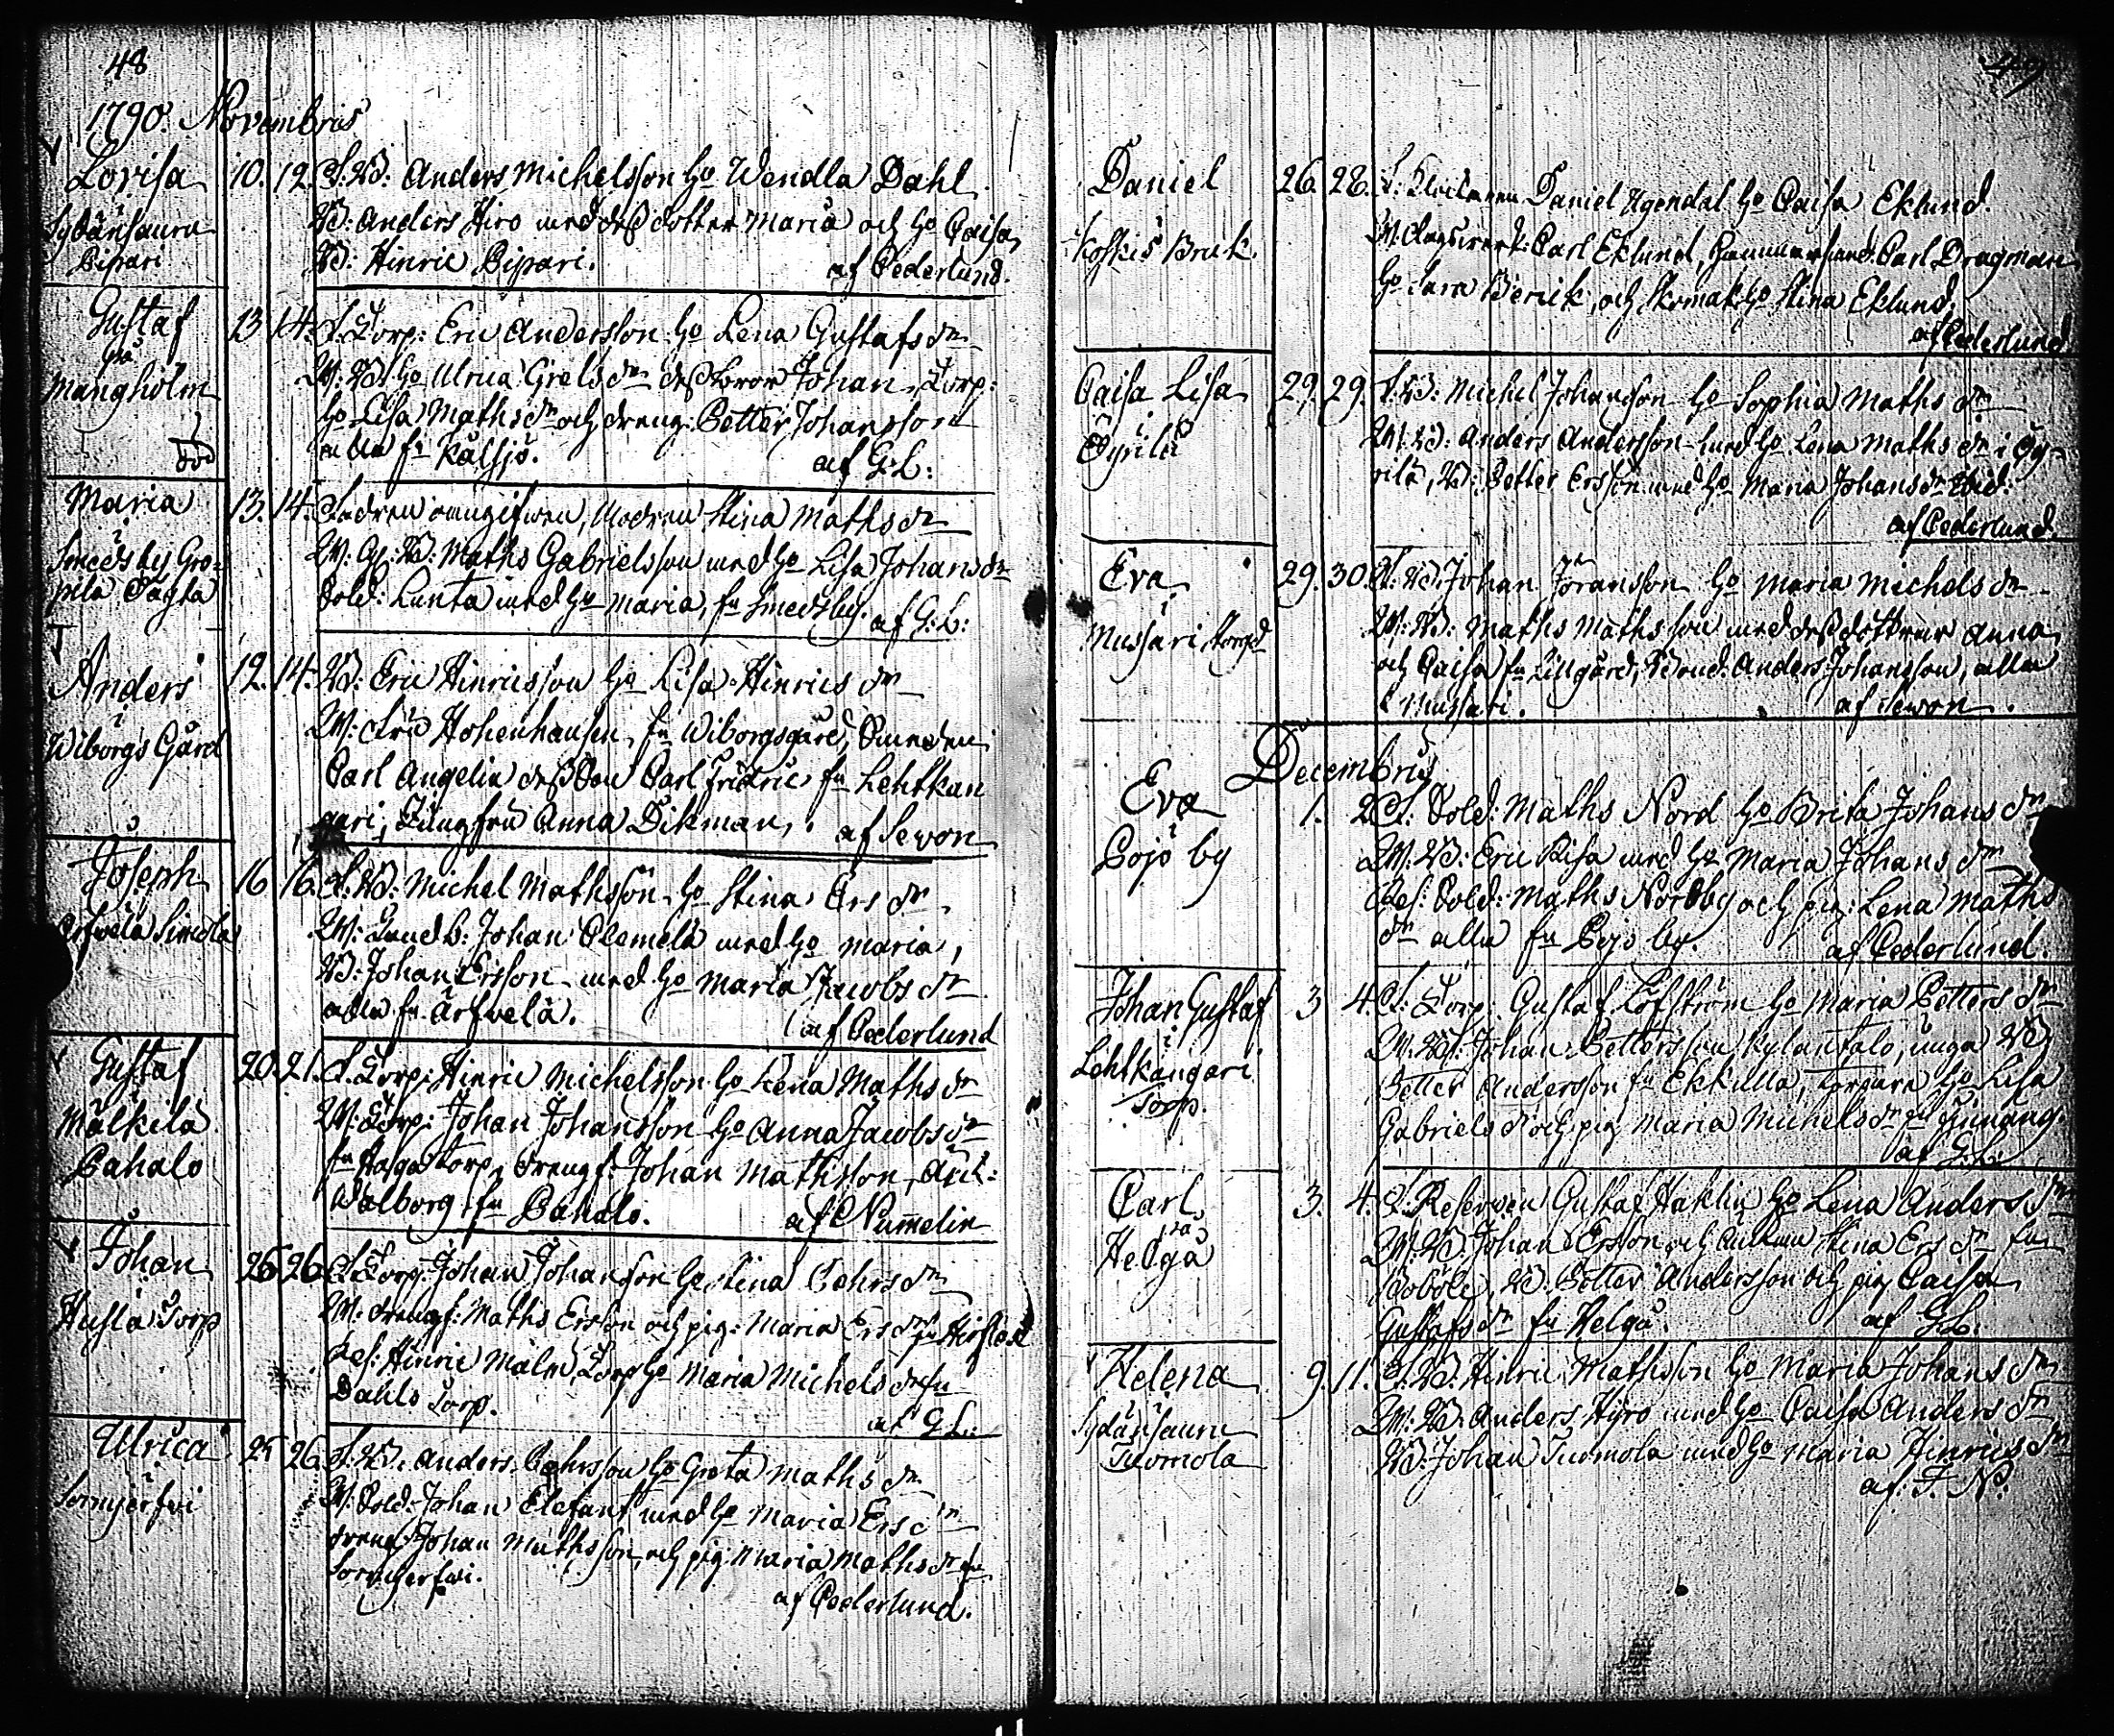 48
1790. Novembris
Lovisa 10. 12. F. Bd: Anders Michelsson Ho Wendla Dahl
Sydänsaura Bd: Anders Hiro med dess dotter Maria och Ho Caisa,
Pispari Bd: Hinric Pispari. af Cederlund.
Gustaf 13. 14. F. Torp: Eric Andersson Ho Lena Gustafs dr
på W: Bd. Ho Ulrica Grels dr dess bror Johan, Torp:
Mangholm Ho Lisa Maths dr och dreng: Petter Johansson
död alla fr Källsjö. af G:L:
Maria 13. 14. Fadren oangifwen, Modren Stina Maths dr
Smedsby Gro- W: Gl. Bd: Maths Gabrielsson med Ho Lisa Johans dr
pila Sold: Lunta med Ho Maria, fr Smedsby. af G:L:
Anders 12. 14. Bd: Eric Hinricsson Ho Lisa Hinrics dr
i W: Fru Hohenhausen, fr Wiborgsgård, Smeden
Wiborgs Gård Carl Angelin dess Son Carl Fridric fr Lehtkan
gari, Jungfru Anna Dikman. af Sevon
Joseph 16 16. F: Bd: Michel Mathsson Ho Stina Ers dr
Arfvela Simola W: Landb: Johan Clemelä med Ho Maria,
Bd: Johan Ersson med Ho Maria Jacobs dr
alla fr Arfvelä. af Cederlund
Gustaf 20. 21. F. Torp: Hinric Michelsson Ho Lena Maths dr
Mälkilä W: Torp: Johan Johansson Ho Anna Jacobs dr
Pahalo fr Torp, drengf: Johan Mathsson, Änk:
Walborg fr Pahalo. af Nummelin
Johan 25. 26. F. Torp: Johan Johansson Ho Stina Pehrs dr
Husla Torp W: drengf: Maths Ersson och pig: Maria Ers dr fr
Res: Hinric Malm, Torp Ho Maria Michels dr fr
Dahls Torp. af G.L.
Ulrica 25 26. F. Bd. Anders Pehrsson Ho Greta Maths dr
Sornjerfvi W: Sold: Johan Elefant med Ho Maria Ers dr
dreng: Johan Mathsson, och pig: Maria Maths dr fr
Sornjerfvi. af Cederlund.
49
Daniel 26. 28. F. Daniel Ho Caisa Eklund
i Carl Eklund, Carl Dragman
Koskis Bruk. Ho Sara och Skomak: Ho Stina Eklund.
af Cederlund
Caisa Lisa 29. 29. F. Bd: Michel Johansson Ho Sophia Maths dr
i W: Bd: Anders Andersson med Ho Lena Maths dr i Gy-
Gyrilä rilä, Bd: Petter Ersson med Ho Maria Johans dr ibid:
af Cederlund.
Eva 29. 30. F. Bd. Johan Jöransson Ho Maria Michels dr
i W: Bd: Maths Mathsson med dess döttrar Anna
Mussari och Caisa fr Lillgård, Anders Johansson, alla
i Mussari. af Sevon.
Decembris
Eva 1. 2 F: Sold: Maths Nord Ho Brita Johans dr
Pojo by W: Bd: Eric Kisa med Ho Maria Johans dr
Res: Sold: Maths Nordby och pig: Lena Maths
dr alla fr Pojo by. af Cederlund.
Johan Gustaf 3 4. F: Torp: Gustaf Löfström Ho Maria Petters dr
i W. Bd: Johan Pettersson Kylantalo, unga Bd:
Lehtkangari Petter Andersson fr Ekkilla, Torpare Ho Lisa
Torp. Gabriels dr och pig Maria Michels dr fr
af G.L.
Carl 3. 4. F. Reserven Gustaf Haklin Ho Lena Anders dr
på W. Bd. Johan Ersson och Enkan Stina Ers dr fr
Helgå Boböle, Bd. Petter Andersson och pig Caisa
Gustafs dr fr Helgå. af G.L.
Helena 9. 11. F. Bd. Hinric Mathsson Ho Maria Johans dr
Sydänsaura W: Bd. Anders Hyro med Ho Caisa Anders dr
Tuomola Bd: Johan Tuomola med Ho Maria Hinrics dr
af: F. N.